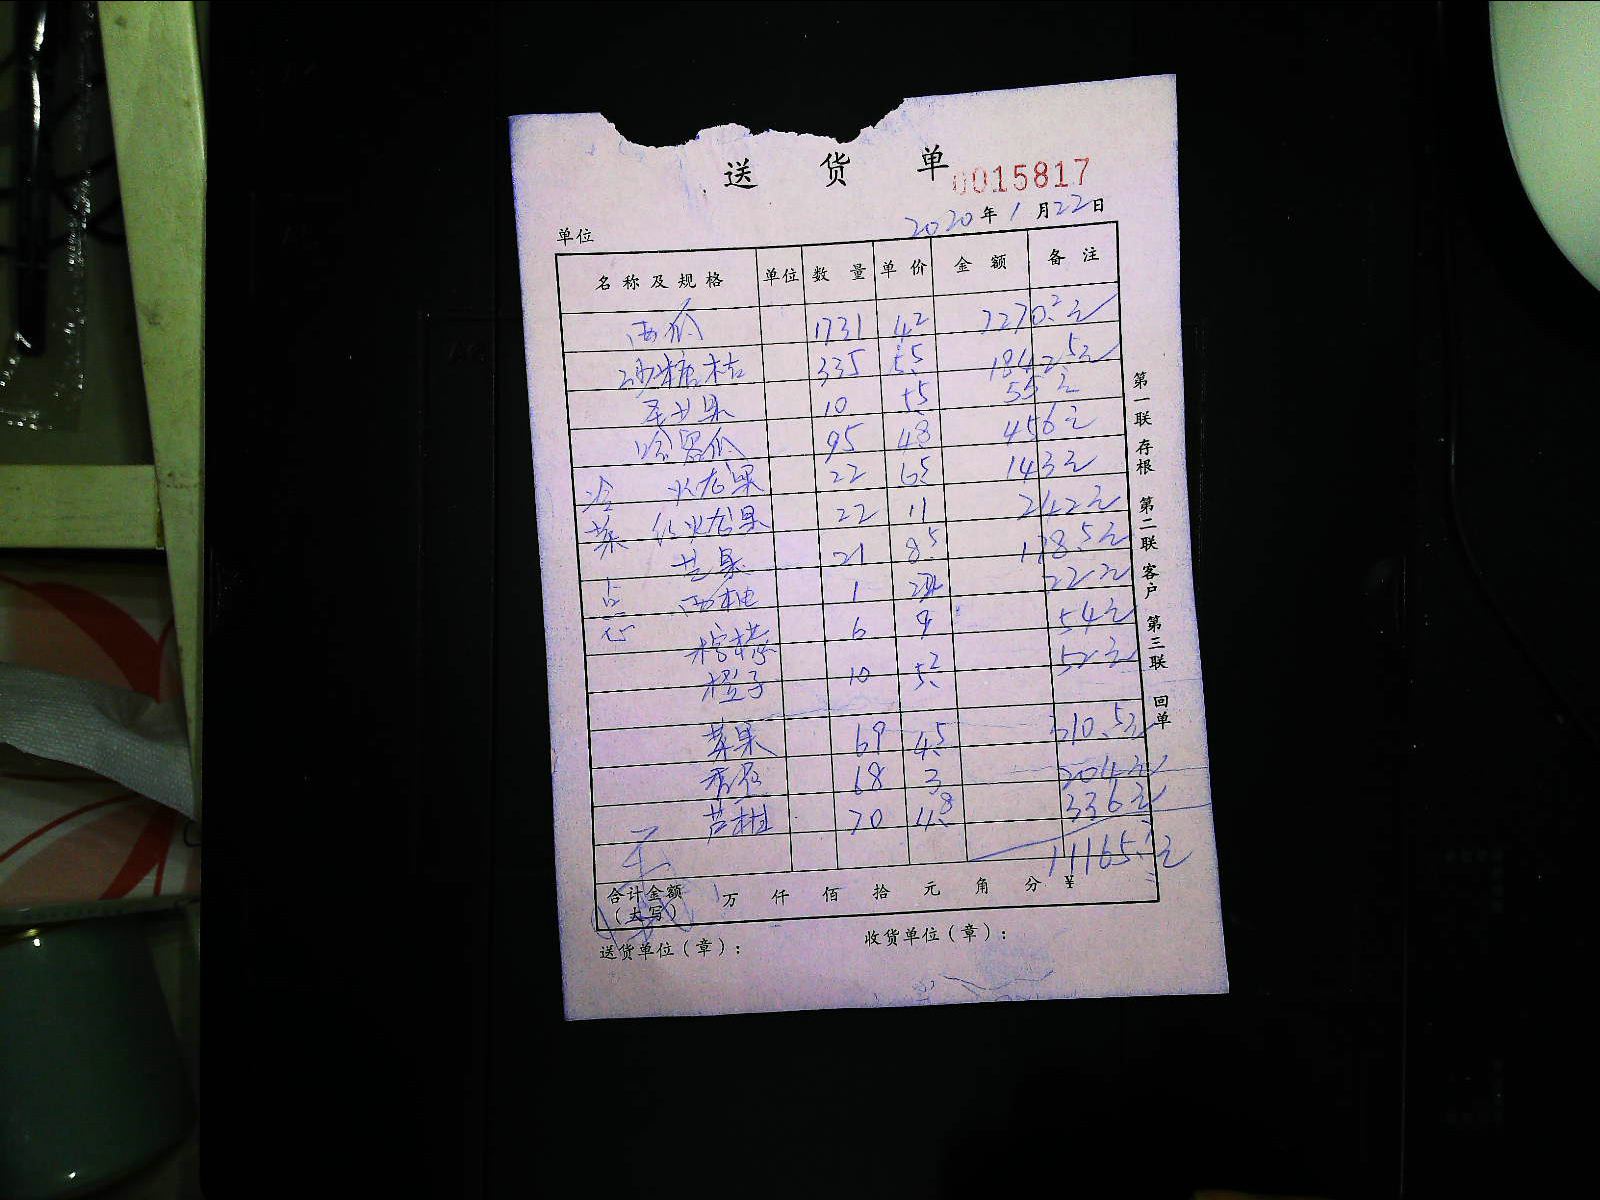 送 货 单
0015817
单位
2020年1月22日
名称及规格 单位 数量 单价 金额 备注
西瓜 1731 4.2 7270.2元
沙糖桔 335 5.5 1842.5元
10 5.5 55元
哈密瓜 95 4.8 456元
冷 火龙果 22 6.5 143元
菜 红火龙果 22 11 242元
芒果 21 8.5 178.5元
点 西柚 1 22 22元
心 柠檬 6 9 54元
橙子 10 5.2 52元
苹果 69 4.5 310.5元
68 3 204元
芦柑 70 4.8 336元
11165.元
合计金额(大写) 万 仟 佰 拾 元 角 分 ¥
送货单位(章): 收货单位(章):
第一联 存根 第二联 客户 第三联 回单